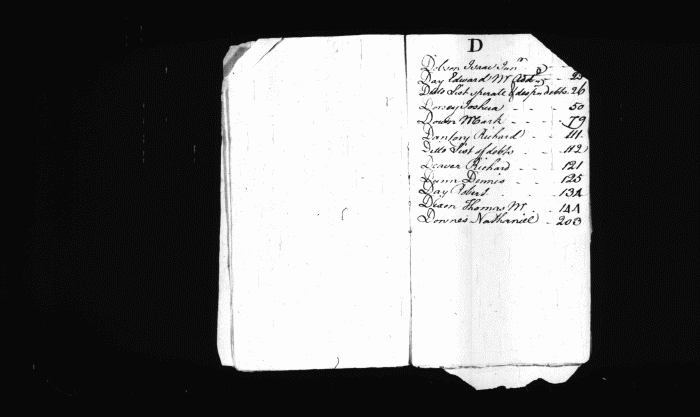 D
Dobson Isaac Junr - -
Day Edward Mr - 25
Ditto List sperate & desp. debts 26
Dorsey Joshua - - - 50
Dower Mark - - - 79
Danfory Richard - - 111
Ditto List of debts - - 112
Deaver Richard - - - 121
Dunn Dennis - - - 125
Day Robert - - - 134
Dixon Thomas Mr - - 144
Downes Nathaniel - 203